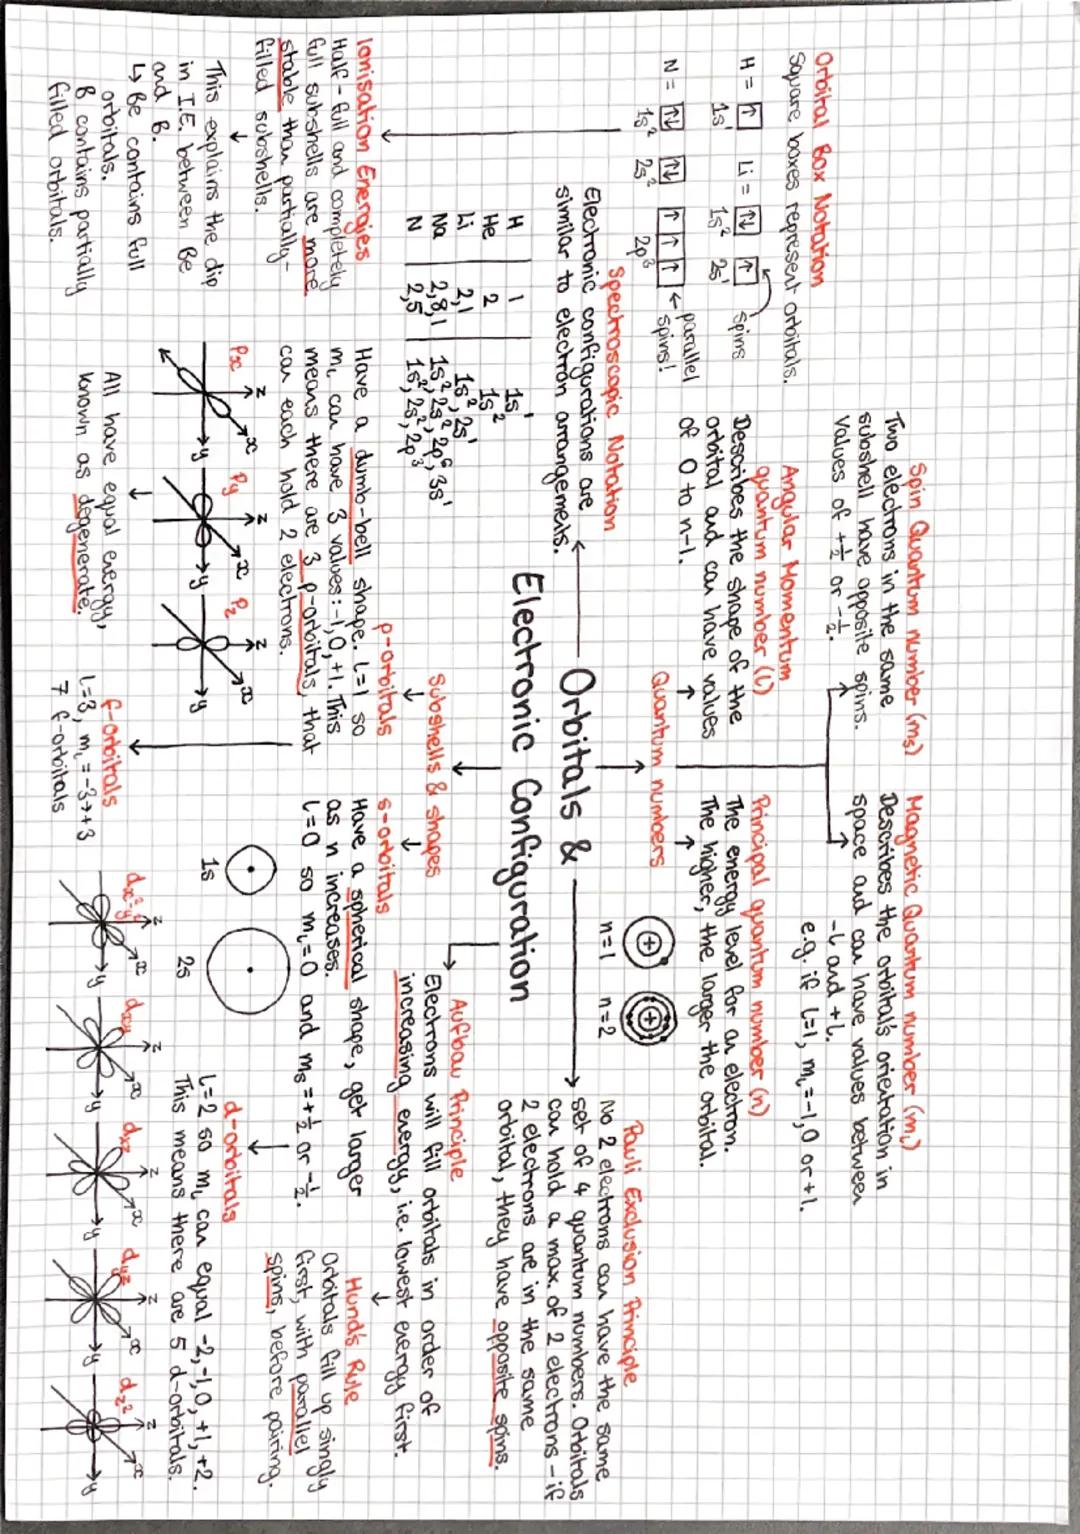 Orbitals &
Electronic Configuration
Spin Quantum number (ms)
Two electrons in the same
subshell have opposite spins.
Values of +½ or -½.
Magnetic Quantum number (mₗ)
Describes the orbital's orientation in
space and can have values between
-l and +l.
e.g. if l=1, mₗ=-1,0 or +1.
Orbital Box Notation
Square boxes represent orbitals.
H = ↑ Li = ↑↓ ↑ spins
1s¹ 1s² 2s¹
N = ↑↓ ↑↓ ↑ ↑ ↑ ← parallel
spins!
1s² 2s² 2p³
Angular Momentum
quantum number (l)
Describes the shape of the
orbital and can have values
of 0 to n-1.
Principal quantum number (n)
The energy level for an electron.
The higher, the larger the orbital.
Quantum numbers
n=1 n=2
Pauli Exclusion Principle
No 2 electrons can have the same
set of 4 quantum numbers. Orbitals
can hold a max. of 2 electrons - if
2 electrons are in the same
orbital, they have opposite spins.
Spectroscopic Notation
Electronic configurations are
similar to electron arrangements.
H 1 1s¹
He 2 1s²
Li 2,1 1s², 2s¹
Na 2,8,1 1s², 2s², 2p⁶, 3s¹
N 2,5 1s², 2s², 2p³
Ionisation Energies
Half-full and completely
full subshells are more
stable than partially-
filled subshells.
↓
This explains the dip
in I.E. between Be
and B.
↳ Be contains full
orbitals.
B contains partially
filled orbitals.
Subshells & shapes
p-orbitals
Have a dumb-bell shape. l=1 so
mₗ can have 3 values: -1,0,+1. This
means there are 3 p-orbitals, that
can each hold 2 electrons.
Px Py Pz
z x y z x y z x y
All have equal energy,
known as degenerate.
s-orbitals
Have a spherical shape, get larger
as n increases.
l=0 so mₗ=0 and ms=+½ or -½.
1s 2s
Aufbau Principle
Electrons will fill orbitals in order of
increasing energy, i.e. lowest energy first.
Hund's Rule
Orbitals fill up singly
first, with parallel
spins, before pairing.
f-orbitals
l=3, mₗ=-3→+3
7 f-orbitals
d-orbitals
l=2 so mₗ can equal -2,-1,0,+1,+2.
This means there are 5 d-orbitals.
dx²-y² dxy dxz dyz dz²
z x y z x y z x y z x y z x y